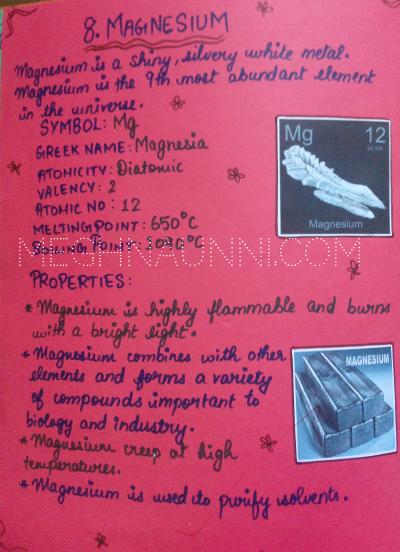 8. MAGNESIUM
Magnesium is a shiny, silvery white metal.
Magnesium is the 9th most abundant element
in the universe.
SYMBOL: Mg
GREEK NAME: Magnesia
ATOMICITY: Diatomic
VALENCY: 2
ATOMIC NO: 12
MELTING POINT: 650°C
BOILING POINT: 1090°C
MEGHNAUNNI.COM
Mg 12
Magnesium
PROPERTIES:
* Magnesium is highly flammable and burns
with a bright light.
* Magnesium combines with other
elements and forms a variety
of compounds important to
biology and industry.
* Magnesium creep at high
temperatures.
* Magnesium is used to purify solvents.
MAGNESIUM